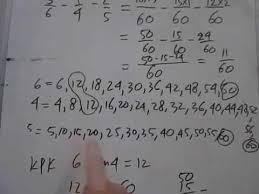 - 1/4 - 2/5 = /60 - 15x1/60 - 12x2/60
= 50/60 - 15/60 - 24/60
= 50-15-24/60 = 11/60
6 = 6,12,18,24,30,36,42,48,54,60
4 = 4,8,12,16,20,24,28,32,36,40,44,48
5 = 5,10,15,20,25,30,35,40,45,50,55,60
KPK 6 4 = 12